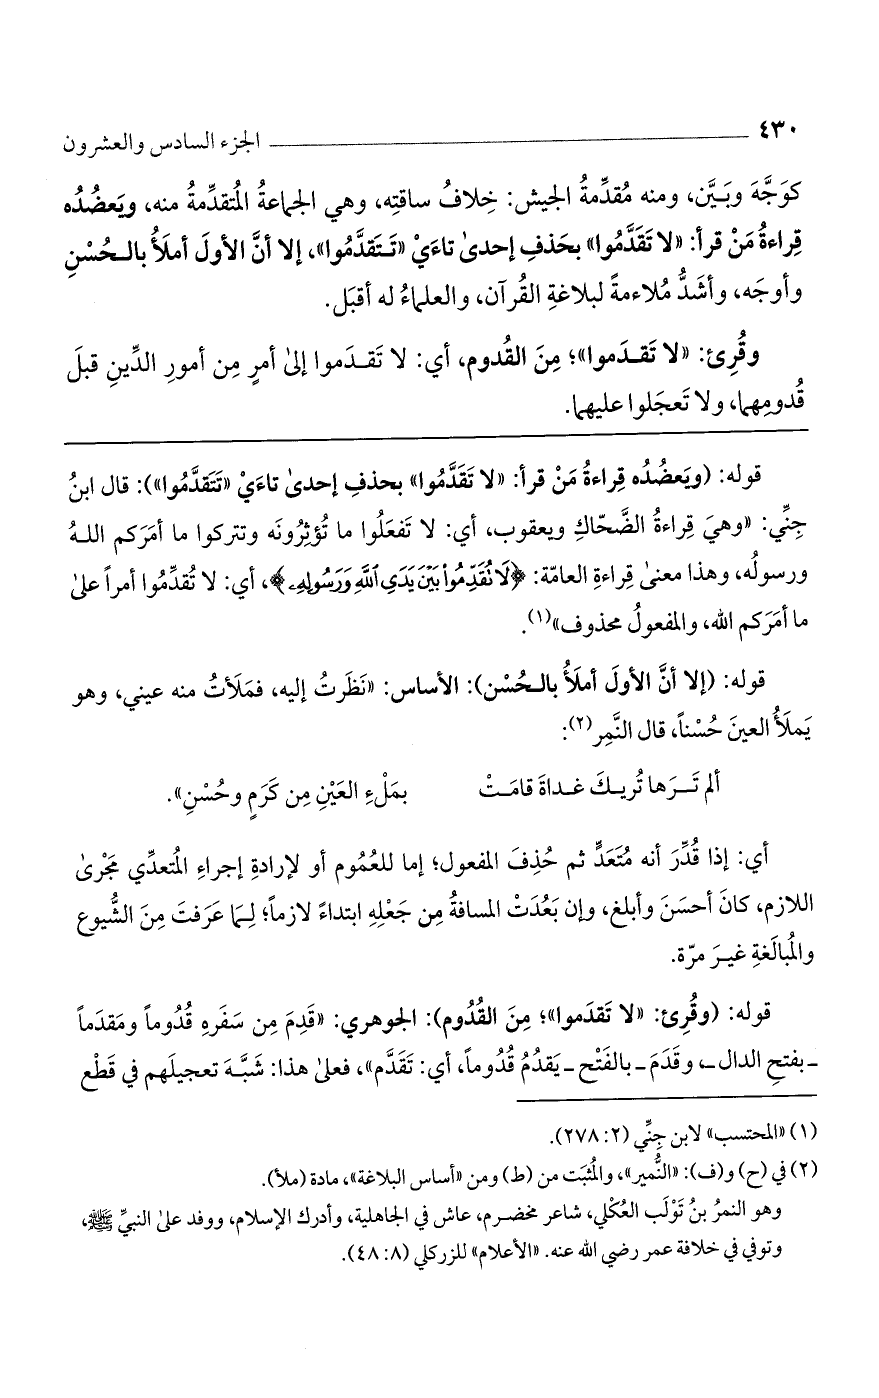 ٤٣٠ الجزء السادس والعشرون
كوَجَّهَ وبَيَّن، ومنه مُقدِّمةُ الجيش: خِلافُ ساقتِه، وهي الجماعةُ المُتقدِّمةُ منه، ويَعضُدُه
قِراءةُ مَنْ قرأ: «لا تَقَدَّمُوا» بحَذفِ إحدىٰ تاءَيْ «تَـتَقدَّمُوا»، إلا أنَّ الأولَ أملَأُ بالـحُسْنِ
وأوجَه، وأشَدُّ مُلاءمةً لبلاغةِ القُرآن، والعلماءُ له أقبَل.
وقُرِئ: «لا تَقـدَموا»؛ مِنَ القُدوم، أي: لا تَقـدَموا إلىٰ أمرٍ مِن أمورِ الدِّينِ قبلَ
قُدومِهما، ولا تَعجَلوا عليهما.
قوله: (ويَعضُدُه قِراءةُ مَنْ قرأ: «لا تَقَدَّمُوا» بحذفِ إحدىٰ تاءَيْ «تَتَقدَّمُوا»): قال ابنُ
جِنِّي: «وهيَ قِراءةُ الضَّحّاكِ ويعقوب، أي: لا تَفعَلُوا ما تُؤثِرُونَه وتتركوا ما أمَرَكم اللهُ
ورسولُه، وهذا معنىٰ قِراءةِ العامّة: ﴿لَا نُقَدِّمُواْ بَيْنَ يَدَىِ ٱللَّهِ وَرَسُولِهِۦ﴾، أي: لا تُقدِّمُوا أمراً علىٰ
ما أمَرَكم الله، والمفعولُ محذوف»(١).
قوله: (إلا أنَّ الأولَ أملَأُ بالـحُسْن): الأساس: «نَظَرتُ إليه، فمَلَأتُ منه عيني، وهو
يَملَأُ العينَ حُسْناً، قال النَّمِر(٢):
ألم تَـرَها تُريـكَ غـداةَ قامَـتْ بمَلْءِ العَيْنِ مِن كَرَمٍ وحُسْنِ».
أي: إذا قُدِّرَ أنه مُتَعَدٍّ ثم حُذِفَ المفعول؛ إما للعُمُوم أو لإرادةِ إجراءِ المُتعدِّي مَجْرىٰ
اللازم، كانَ أحسَنَ وأبلغ، وإن بَعُدَتْ المسافةُ مِن جَعْلِهِ ابتداءً لازماً؛ لِـمَا عَرَفتَ مِنَ الشُّيوع
والمُبالَغةِ غيـرَ مرّة.
قوله: (وقُرِئ: «لا تَقدَموا»؛ مِنَ القُدُوم): الجوهري: «قَدِمَ مِن سَفَرِهِ قُدُوماً ومَقدَماً
ـ بفتحِ الدال ـ، وقَدَمَ ـ بالفَتْح ـ يَقدُمُ قُدُوماً، أي: تَقَدَّم»، فعلىٰ هذا: شَبَّـهَ تعجيلَهم في قَطْعِ
(١) «المحتسب» لابن جِنِّي (٢: ٢٧٨).
(٢) في (ح) و(ف): «النُّمير»، والمُثبَت من (ط) ومن «أساس البلاغة»، مادة (ملأ).
وهو النمرُ بنُ تَوْلَب العُكْلي، شاعر مخضرم، عاش في الجاهلية، وأدرك الإسلام، ووفد علىٰ النبيِّ ﷺ،
وتوفي في خلافة عمر رضي الله عنه. «الأعلام» للزركلي (٨: ٤٨).